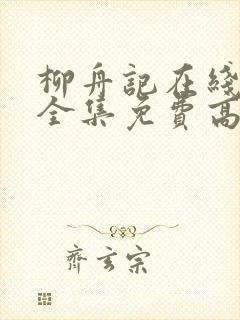 柳舟記在綫
全集免費高
齊玄宗